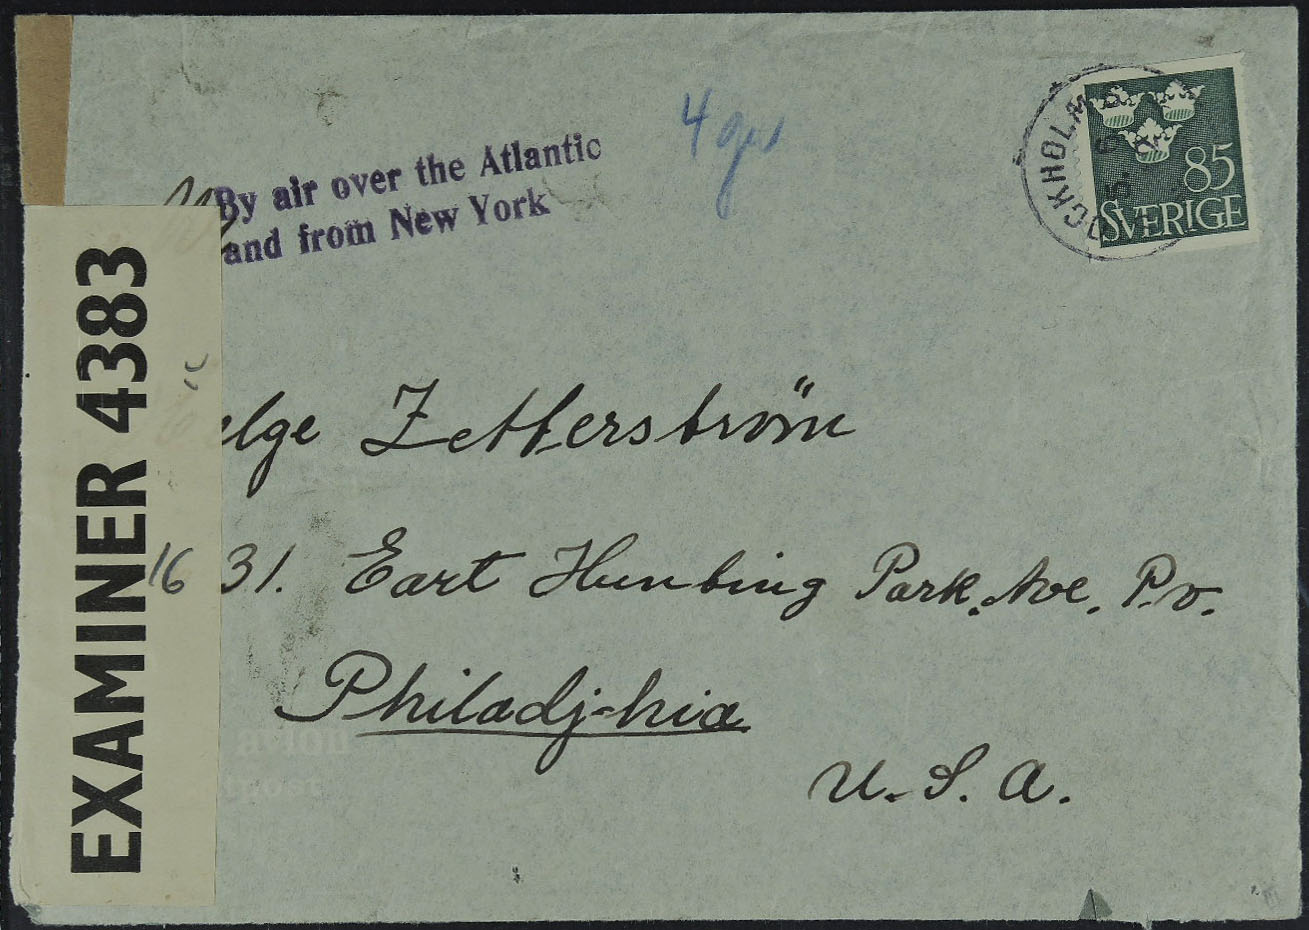 By air over the Atlantic
and from New York
4 gr
STOCKHOLM
85
SVERIGE
EXAMINER 4383
elge Zetterström
1631. East Hunting Park. Ave. Pv.
Philadj-hia
U.S.A.
avion
post